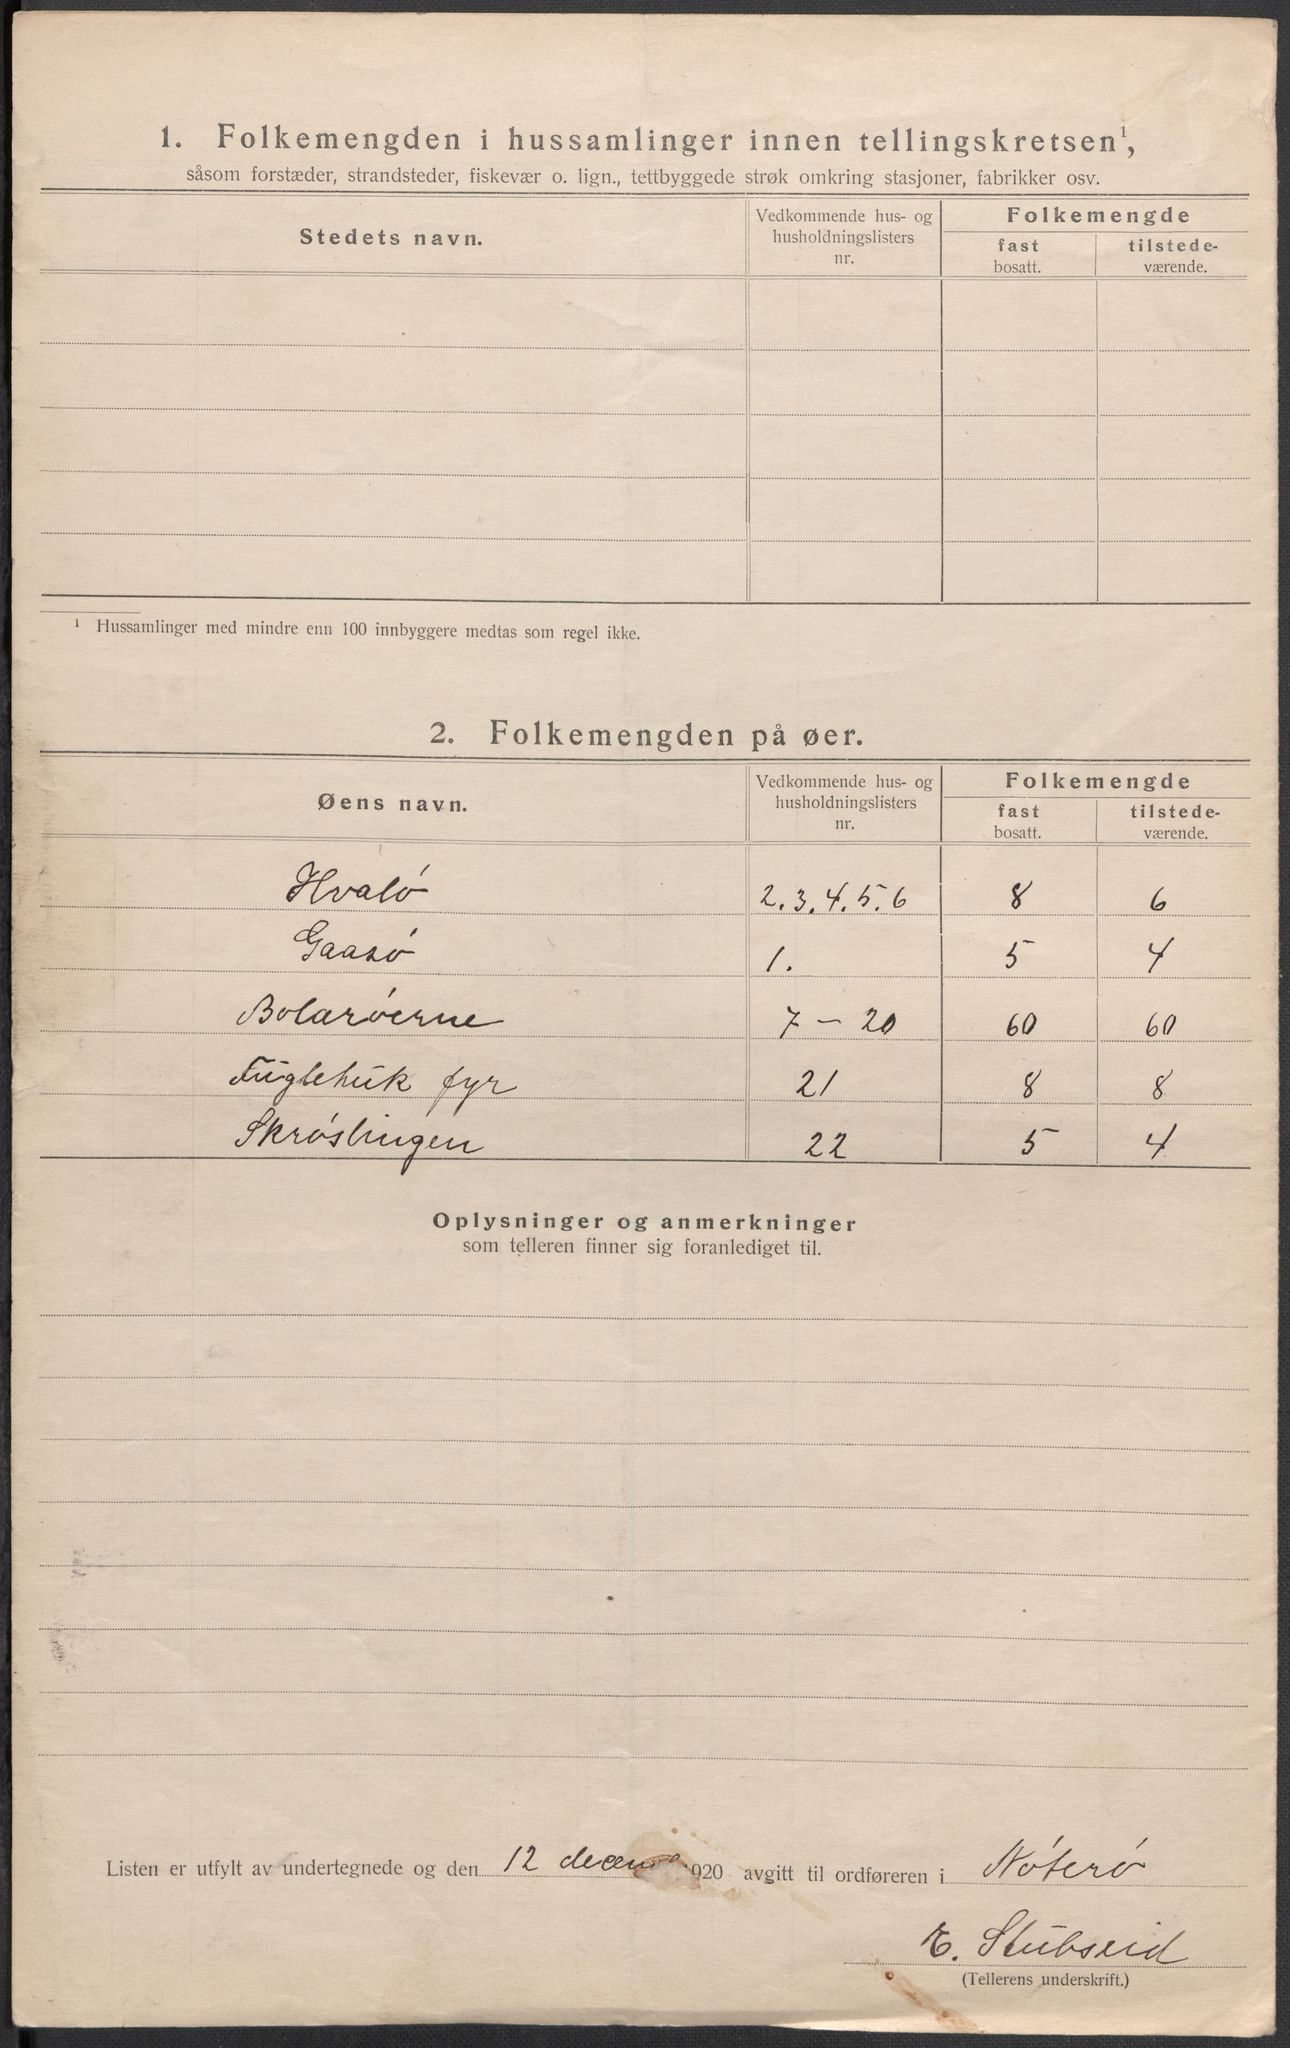 1. Folkemengden i hussamlinger innen tellingskretsen¹,
såsom forstæder, strandsteder, fiskevær o. lign., tettbyggede strøk omkring stasjoner, fabrikker osv.
Stedets navn.
Vedkommende hus- og
husholdningslisters
nr.
Folkemengde
fast
bosatt.
tilstede-
værende.
¹ Hussamlinger med mindre enn 100 innbyggere medtas som regel ikke.
2. Folkemengden på øer.
Øens navn.
Vedkommende hus- og
husholdningslisters
nr.
Folkemengde
fast
bosatt.
tilstede-
værende.
Hvalö 2.3.4.5.6 8 6
Gaasö 1. 5 4
Bolæröerne 7 – 20 60 60
Fuglehuk fyr 21 8 8
Skrøslingen 22 5 4
Oplysninger og anmerkninger
som telleren finner sig foranlediget til.
Listen er utfylt av undertegnede og den 12 decem 920 avgitt til ordføreren i Nöterö
E. Stubseid
(Tellerens underskrift.)